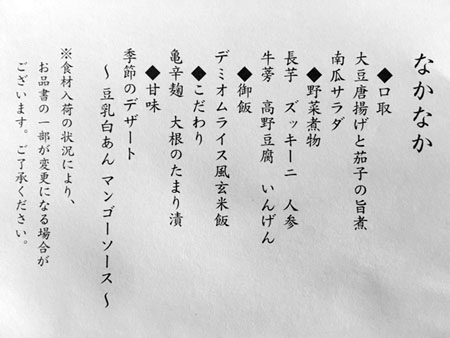 なかなか
◆口取
大豆唐揚げと茄子の旨煮
南瓜サラダ
◆野菜煮物
長芋 ズッキーニ 人参
牛蒡 高野豆腐 いんげん
◆御飯
デミオムライス風玄米飯
◆こだわり
亀辛麹 大根のたまり漬
◆甘味
季節のデザート
～豆乳白あん マンゴーソース～
※食材入荷の状況により、
お品書の一部が変更になる場合が
ございます。ご了承ください。